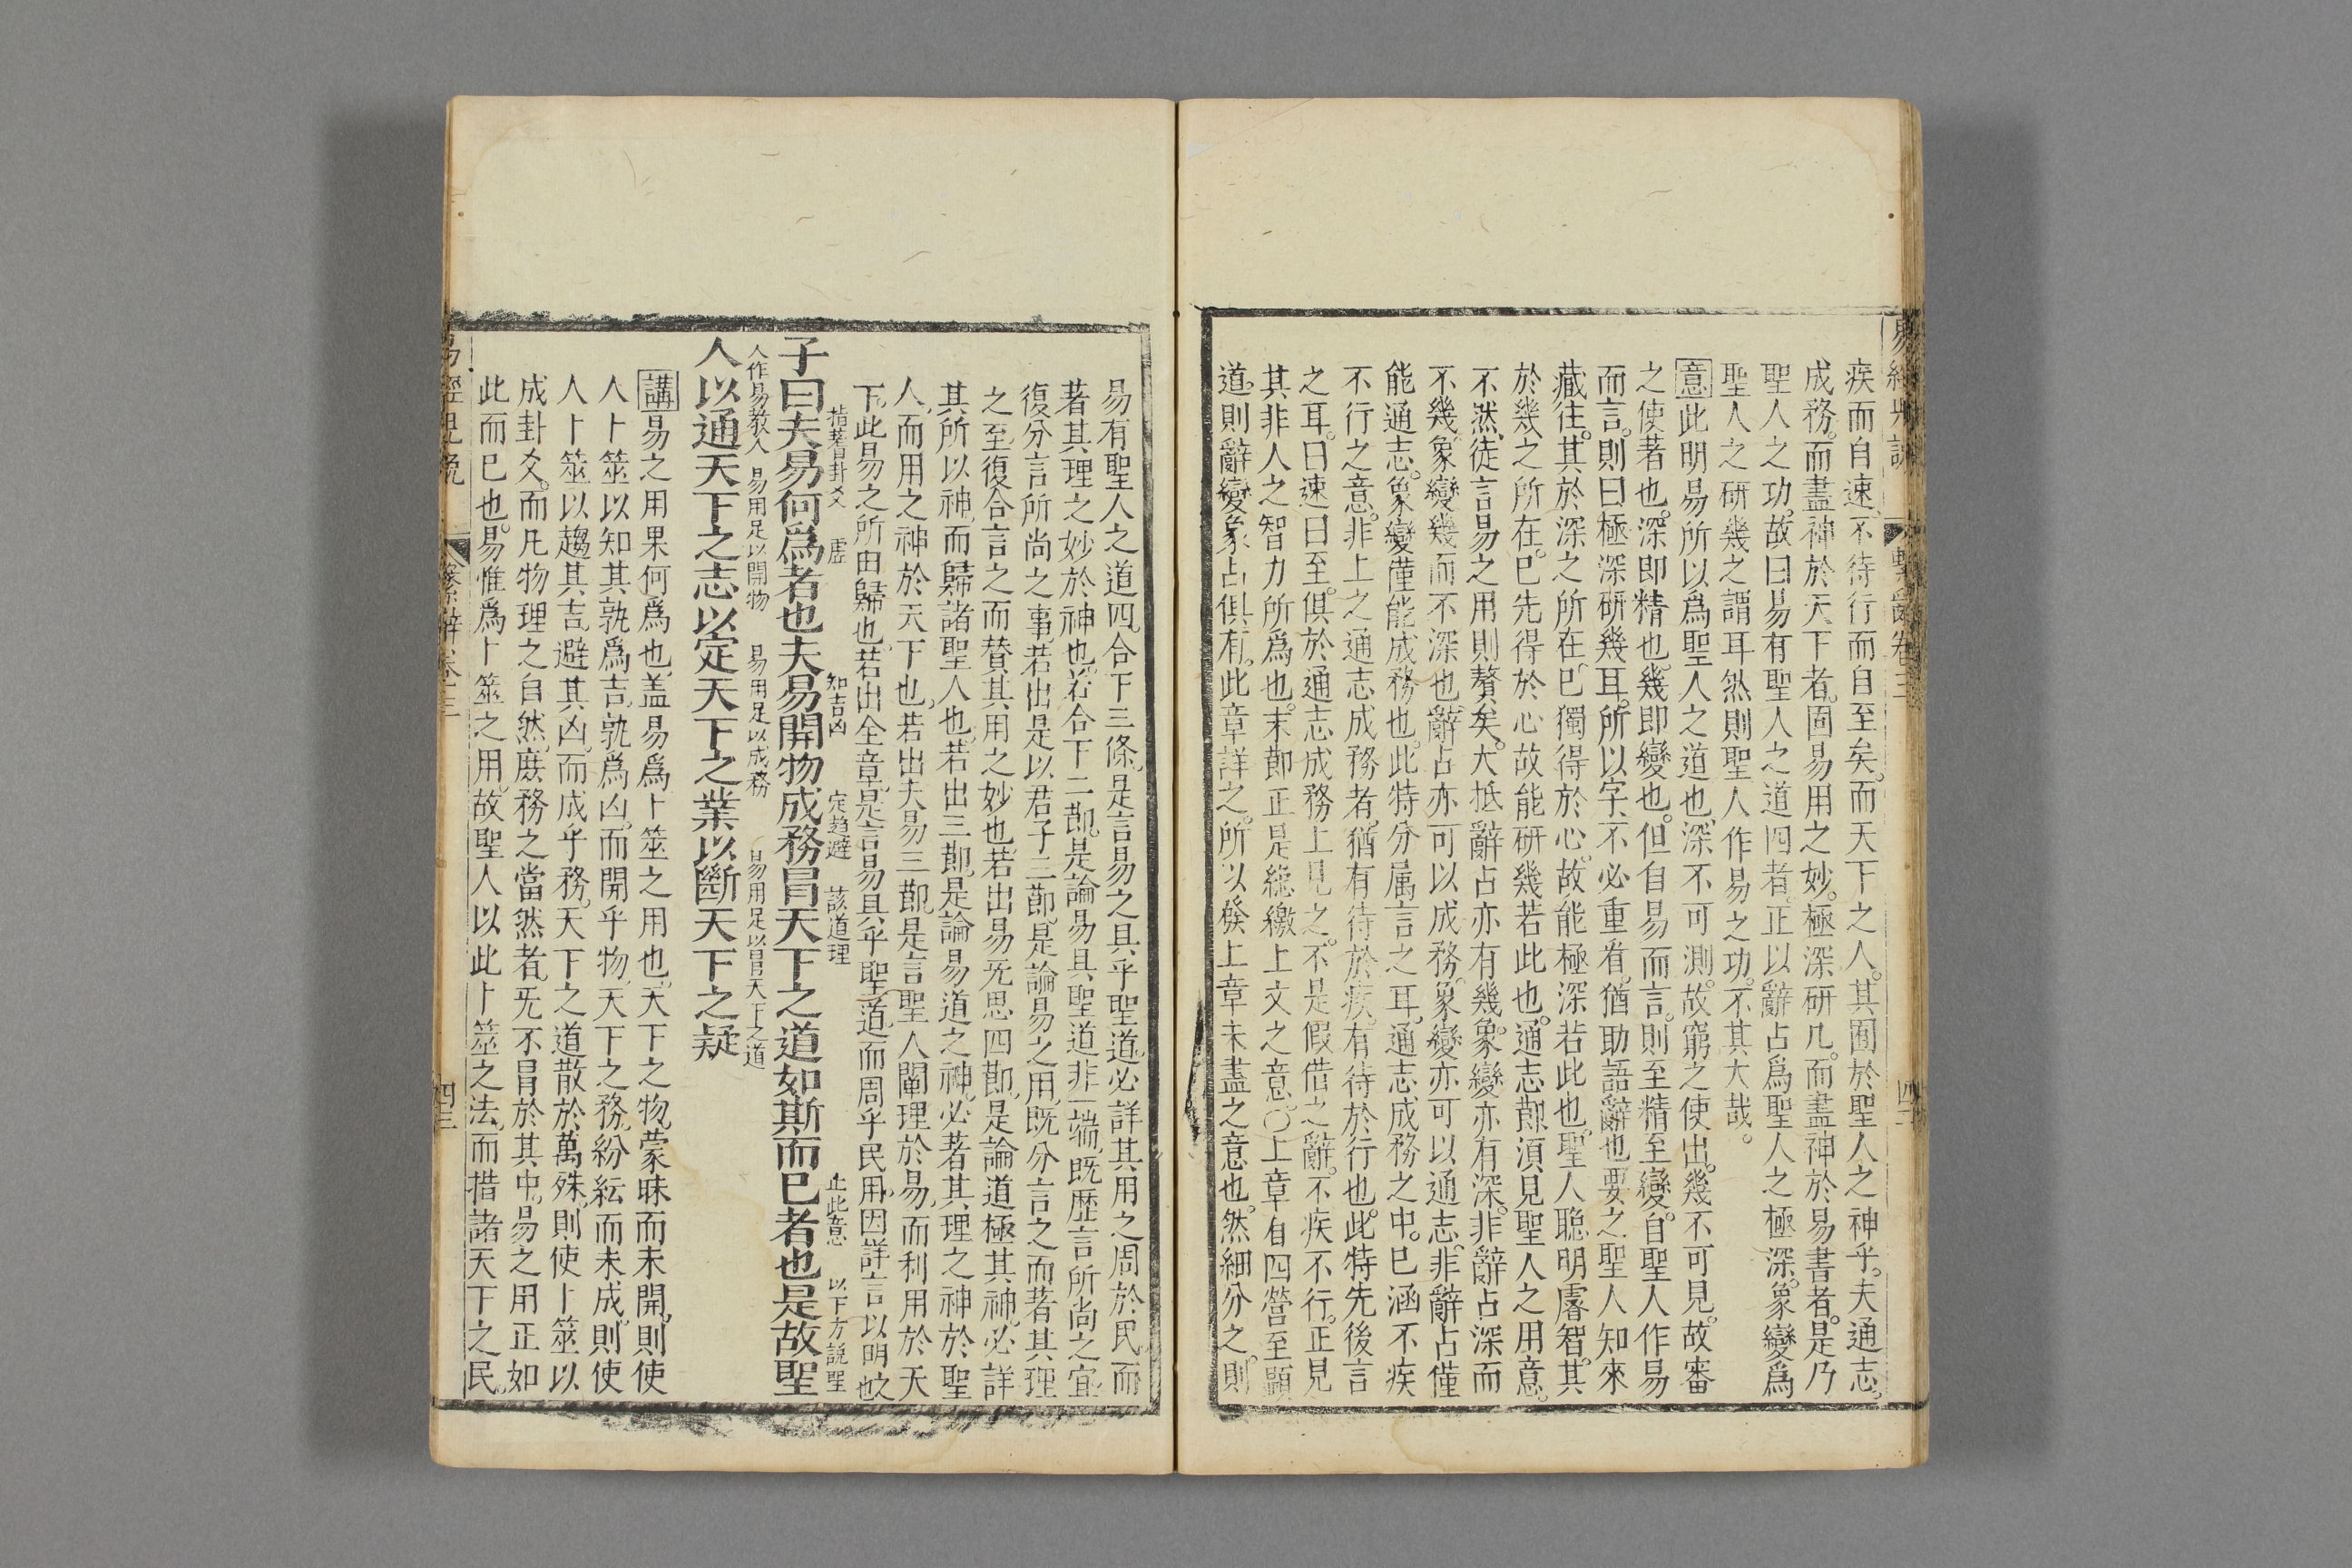 疾而自速。不待行而自至矣。而天下之人。其囿於聖人之神乎。夫通志。
成務。而盡神於天下者。固易用之妙。極深研几。而盡神於易書者。是乃
聖人之功。故曰易有聖人之道四者。正以辭占爲聖人之極深。象變爲
聖人之研幾之謂耳然則聖人作易之功。不其大哉。
意此明易所以爲聖人之道也。深不可測。故窮之使出。幾不可見。故審
之使著也。深即精也。幾即變也。但自易而言。則至精至變。自聖人作易
而言。則曰極深研幾耳。所以字不必重看。猶助語辭也要之聖人知來
藏往。其於深之所在。已獨得於心。故能極深若此也。聖人聰明睿智。其
於幾之所在。已先得於心故能研幾若此也。通志節須見聖人之用意。
不然徒言易之用則贅矣。大抵辭占亦有幾。象變亦有深。非辭占深而
不幾。象變幾而不深也。辭占亦可以成務。象變亦可以通志。非辭占僅
能通志。象變僅能成務也。此特分属言之耳。通志成務之中。已涵不疾
不行之意。非上之通志成務者。猶有待於疾。有待於行也。此特先後言
之耳。曰速曰至。俱於通志成務上見之。不是假借之辭。不疾不行。正見
其非人之智力所爲也。末節正是總繳上文之意。〇上章自四營至顯
道。則辭變象占俱有。此章詳之。所以發上章未盡之意也。然細分之。則
易有聖人之道四。合下三條。是言易之具乎聖道。必詳其用之周於民。而
著其理之妙於神也。若合下二節。是論易具聖道非一端。既歷言所尚之宜。
復分言所尚之事。若出是以君子二節。是論易之用。既分言之而著其理
之至。復合言之而替其用之妙也。若出易旡思四節。是論道極其神。必詳
其所以神。而歸諸聖人也。若出三節。是論易道之神。必著其理之神於聖
人。而用之神於天下也。若出夫易三節。是言聖人闡理於易。而利用於天
下。此易之所由歸也。若出全章。是言易具乎聖道。而周乎民用。因詳言以明之
指蓍卦爻 虛 知吉凶 定趋避 該道理 止此意 以下方說聖
子曰夫易何爲者也夫易開物成務冒天下之道如斯而已者也是故聖
人作易教人 易用足以開物 易用足以成務 易用足以冒天下之道
人以通天下之志以定天下之業以斷天下之疑
講易之用果何爲也。盖易爲卜筮之用也。天下之物。蒙昧而未開。則使
人卜筮以知其孰爲吉。孰爲凶。而開乎物。天下之務。紛紜而未成。則使
人卜筮以趨其吉避其凶。而成乎務。天下之道散於萬殊。則使卜筮以
成卦爻。而凡物理之自然。庶務之當然者。旡不冒於其中。易之用正如
此而已也。易惟爲卜筮之用。故聖人以此卜筮之法。而措諸天下之民。